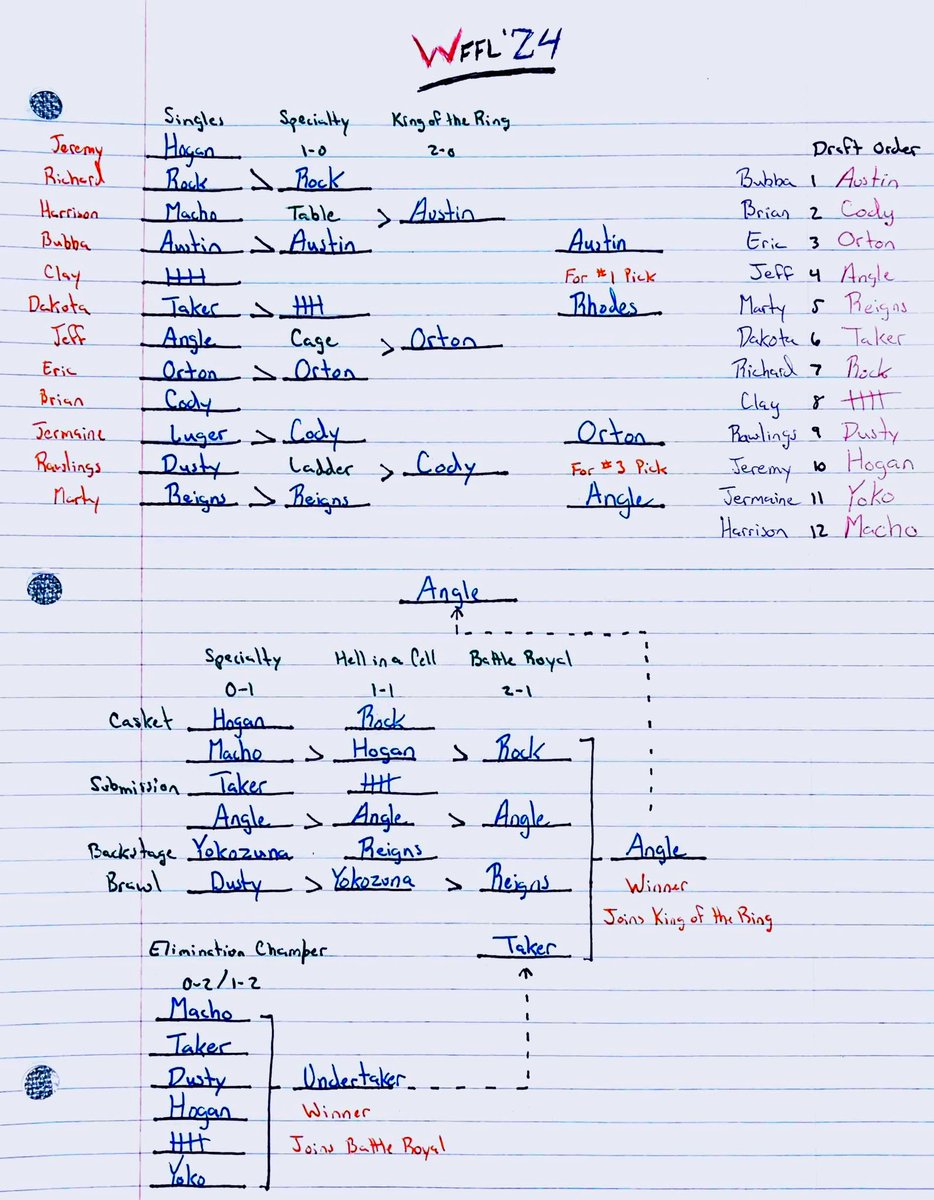 WFFL '24
Singles Specialty King of the Ring
Jeremy Hogan 1-0 2-0 Draft Order
Richard Rock > Rock Bubba 1 Austin
Harrison Macho Table > Austin Brian 2 Cody
Bubba Austin > Austin Austin Eric 3 Orton
Clay HHH For #1 Pick Jeff 4 Angle
Dakota Taker > HHH Rhodes Marty 5 Reigns
Jeff Angle Cage > Orton Dakota 6 Taker
Eric Orton > Orton Richard 7 Rock
Brian Cody Clay 8 HHH
Jermaine Luger > Cody Orton Rawlings 9 Dusty
Rawlings Dusty Ladder > Cody For #3 Pick Jeremy 10 Hogan
Marty Reigns > Reigns Angle Jermaine 11 Yoko
Harrison 12 Macho
Angle
Specialty Hell in a Cell Battle Royal
0-1 1-1 2-1
Casket Hogan Rock
Macho > Hogan > Rock
Submission Taker HHH
Angle > Angle > Angle
Backstage Yokozuna Reigns Angle
Brawl Dusty > Yokozuna > Reigns Winner
Joins King of the Ring
Elimination Chamber Taker
0-2/1-2
Macho
Taker
Dusty Undertaker
Hogan Winner
HHH Joins Battle Royal
Yoko